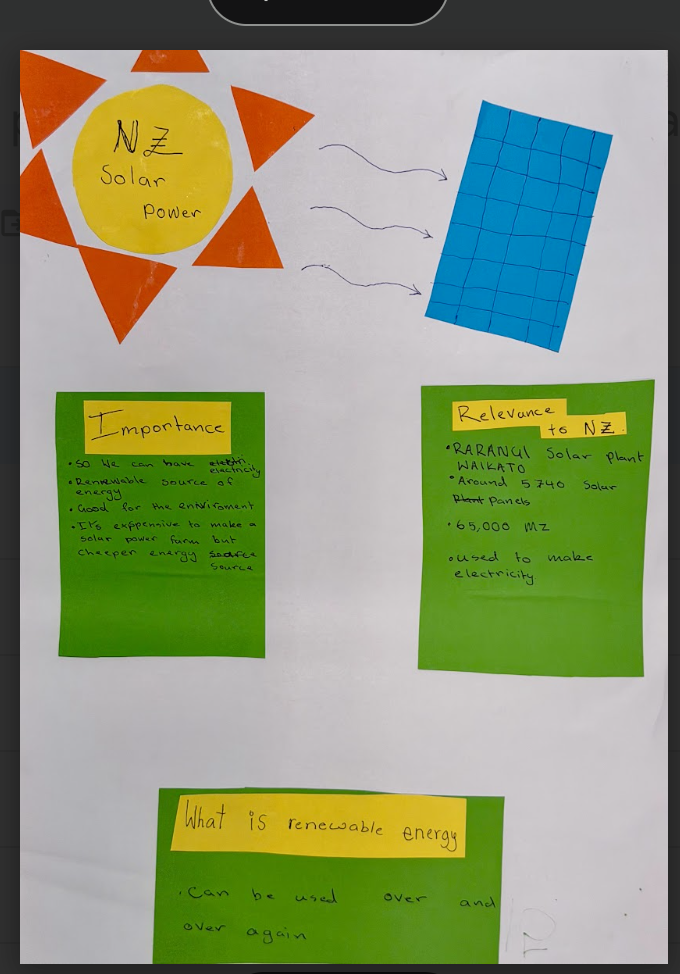 NZ
Solar
Power
Importance
• So We can have electri.
electricity
• Rennewable source of
energy
• Good for the entviroment
• It's exppennive to make a
solar power farm but
cheeper energy source
source
Relevance
to NZ.
• RARANGI Solar plant
WAIKATO
• Around 5 740 Solar
Plant Panels
• 65,000 MZ
• used to make
electricity
What is renewable energy
• Can be used over and
over again